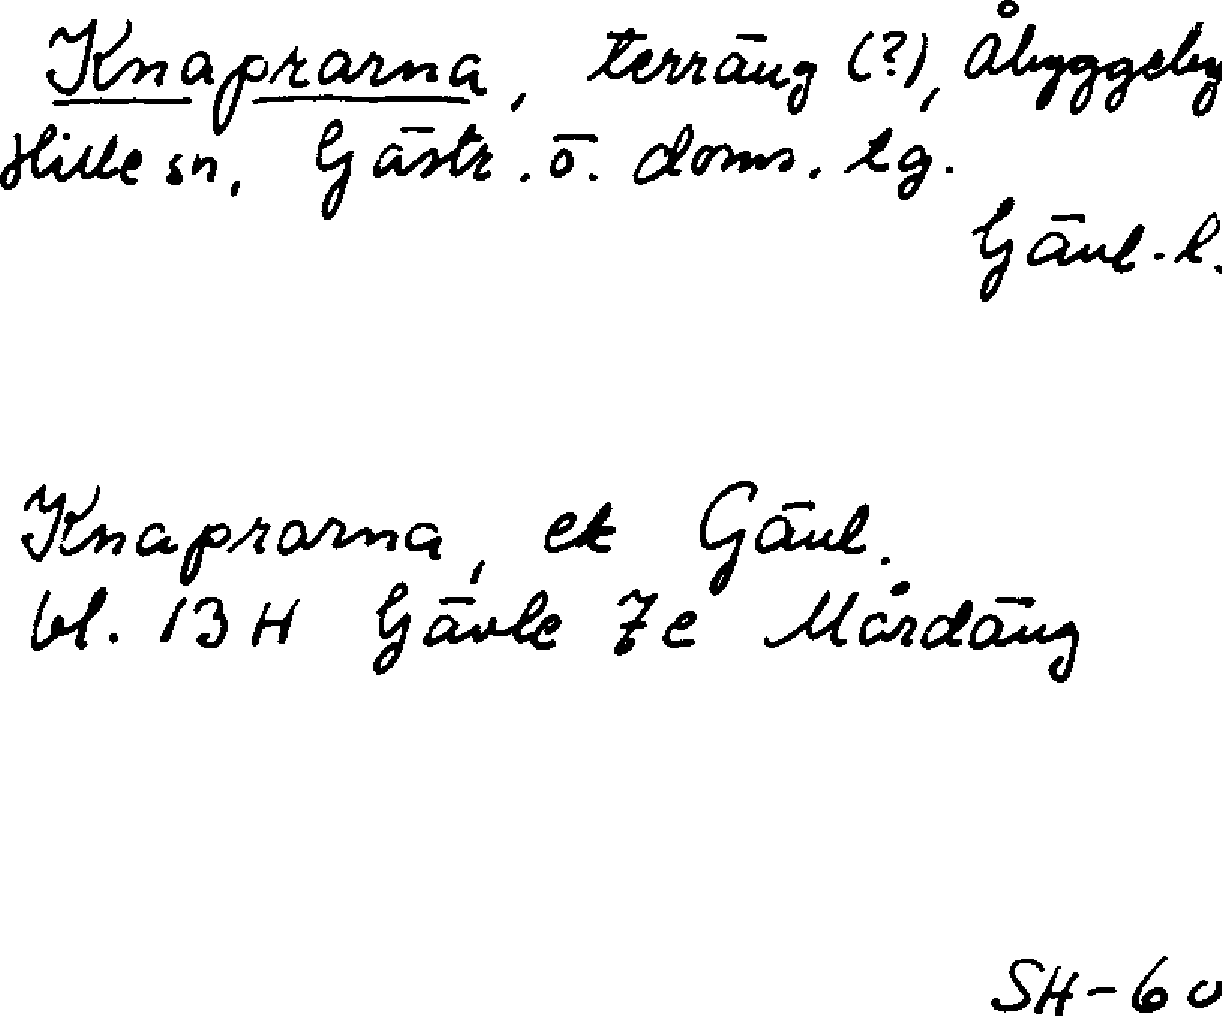 Knaprarna, terräng (?), Åbyggeby
Hille sn, Gästr. ö. doms. lg.
Gävl. l.
Knaprarna, ek Gävl.
bl. 13 H Gävle 7e Mårdäng
SH-60